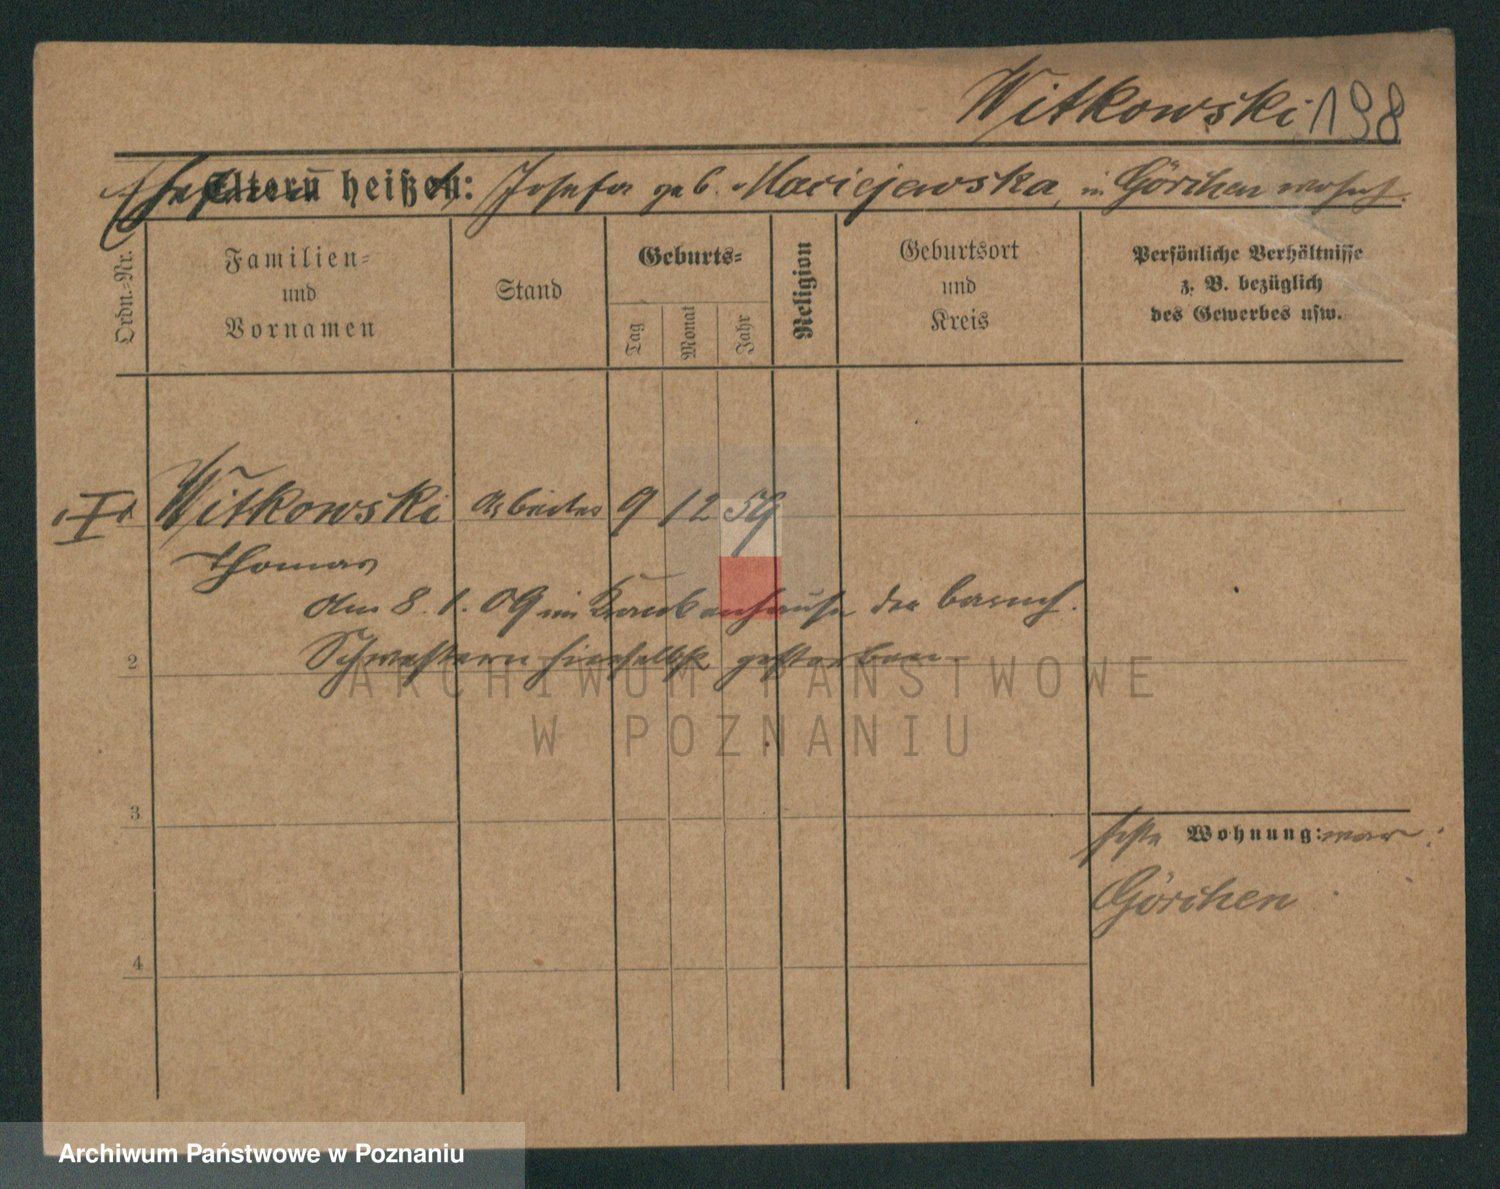 Witkowski 198
Ehefrau Eltern heißen: Josefa geb. Maciejewska, in Görchen wohnh.
Ordn.-Nr.
Familien-
und
Vornamen
Stand
Geburts-
Tag
Monat
Jahr
Religion
Geburtsort
und
Kreis
Persönliche Verhältnisse
z. B. bezüglich
des Gewerbes usw.
I Witkowski Arbeiter 9 12 59
Thomas
den 8. 1. 09 im Krankenhause der barmh.
Schwestern hierselbst gestorben
2
3
4
Wohnung: war:
Görchen
ARCHIWUM PAŃSTWOWE
W POZNANIU
Archiwum Państwowe w Poznaniu